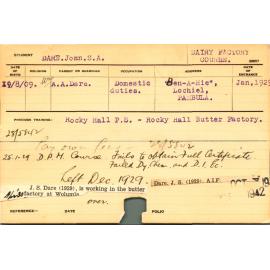 STUDENT DARE, Joan.S.A. DAIRY FACTORY COURSE.
DATE OF BIRTH RELIGION PARENT OR GUARDIAN OCCUPATION ADDRESS DATE OF ENTRANCE
19/8/09. A.A.Dare. Domestic duties. "Ben-A-Hie", Lochiel, PAMBULA. Jan, 1929
PREVIOUS TRAINING: Rocky Hall P.S. - Rocky Hall Butter Factory.
28/5842
Pay own fees - 28/5842
25.1.29 D.F.M. Course Fails to obtain Full Certificate
Failed Dy. and D. Ec.
Left Dec. 1929.
J. S. Dare (1929), is working in the butter
factory at Wolumla.
Dare, J. S. (1929), A I F
OCT 1942
over.
REFERENCE DATE FOLIO